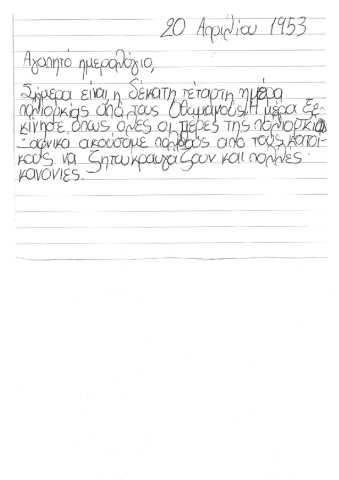 20 Απριλίου 1953
Αγαπητό ημερολόγιο,
Σήμερα είναι η δέκατη τέταρτη ημέρα
πολιορκίας από τους Οθωμανούς. Η μέρα ξε-
κίνησε, όπως όλες οι μέρες της πολιορκία
ακούσαμε πολλούς από τους κατοί-
κους να ζητωκραυγάζουν και πολλές
κανονιές.